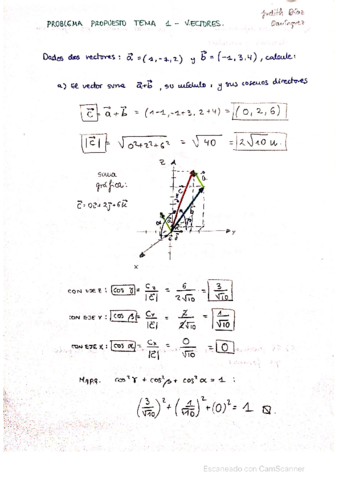 Judith Díaz
Domínguez
PROBLEMA PROPUESTO TEMA 1 - VECTORES.
Dados dos vectores: a⃗ = (1,-1,2) y b⃗ = (-1,3,4), calcule:
a) El vector suma a⃗+b⃗, su módulo, y sus cosenos directores
c⃗ = a⃗ + b⃗ = (1-1, -1+3, 2+4) = (0, 2, 6)
|c⃗| = √0²+2²+6² = √40 = 2√10 u.
suma
gráfica:
Z
Y
X
CON EJE Z: cos γ = Cz/|c⃗| = 6/2√10 = 3/√10
CON EJE Y: cos β = Cy/|c⃗| = 2/2√10 = 1/√10
CON EJE X: cos α = Cx/|c⃗| = 0/√10 = 0
cos²γ + cos²β + cos²α = 1 :
(3/√10)² + (1/√10)² + (0)² = 1
Escaneado con CamScanner